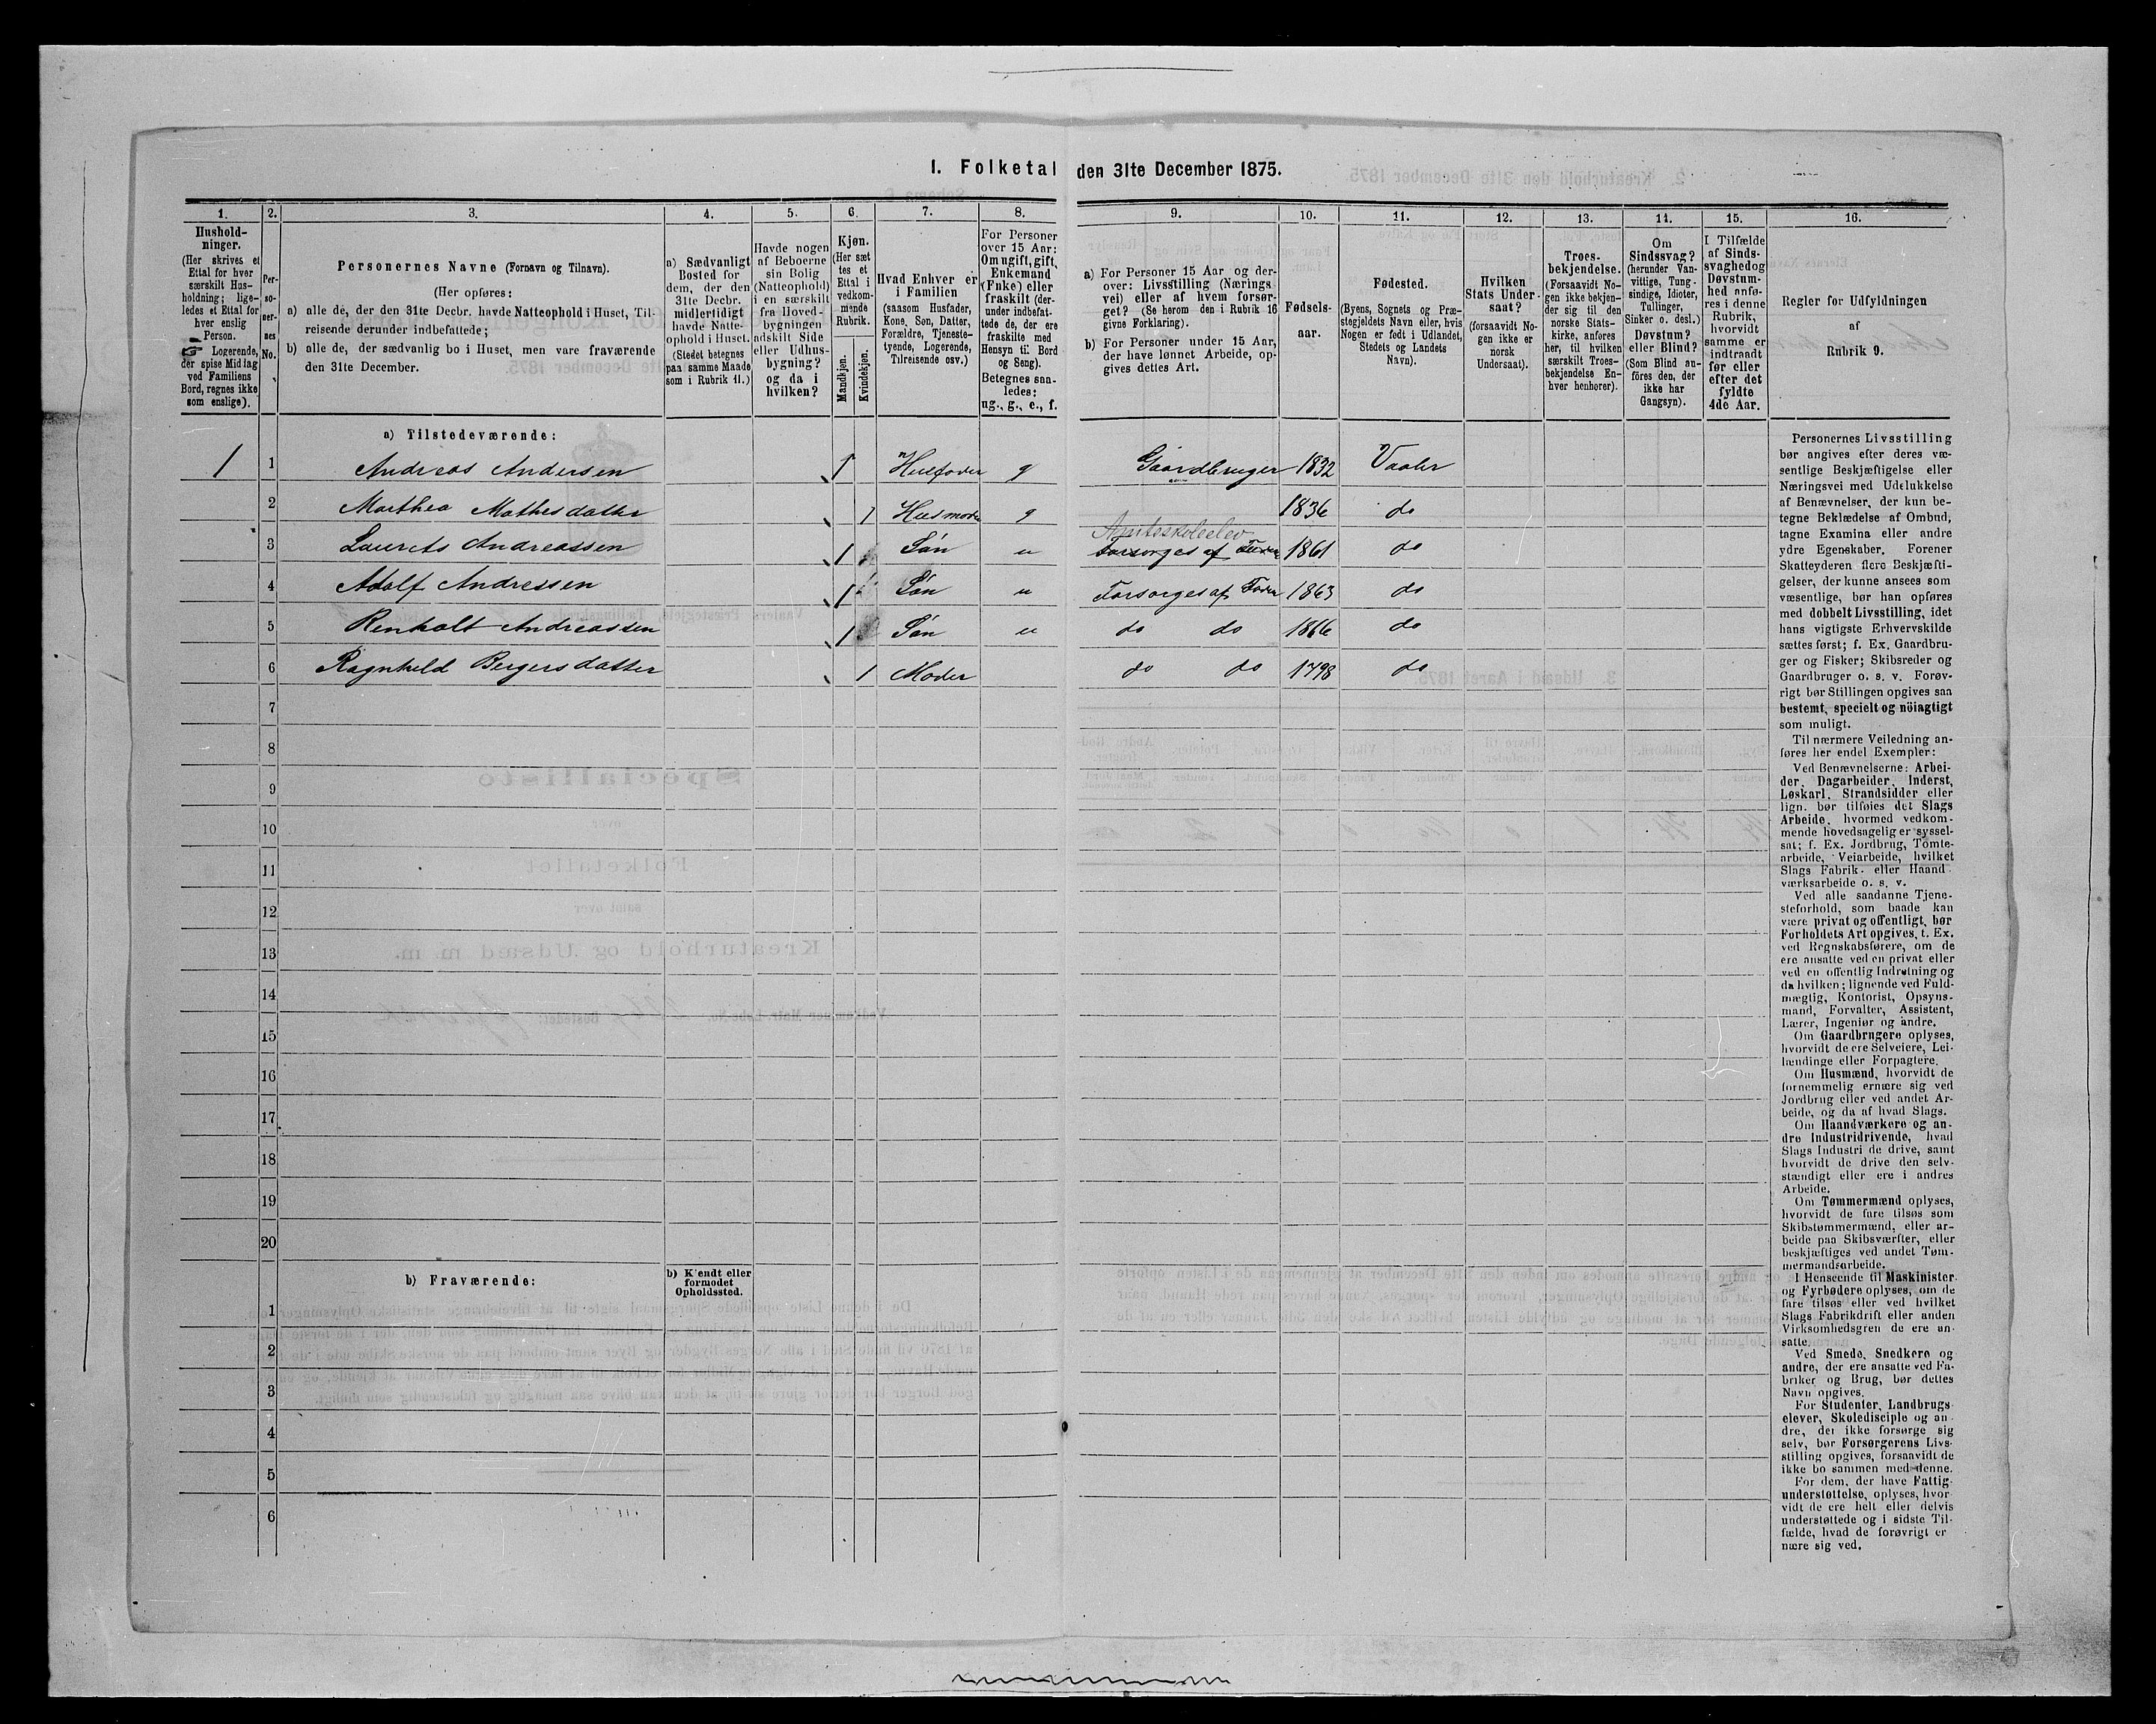 1. Folketal den 31te December 1875.
1. 2. 3. 4. 5. 6. 7. 8. 9. 10. 11. 12. 13. 14. 15. 16.
Hushold-
ninger.
(Her skrives et
Ettal for hver
særskilt Hus-
holdning; lige-
ledes et Ettal for
hver enslig
Person.
☞ Logerende,
der spise Middag
ved Familiens
Bord, regnes ikke
som enslige).
Per-
so-
ner-
nes
No.
Personernes Navne (Fornavn og Tilnavn).
(Her opføres:
a) alle de, der den 31te Decbr. havde Natteophold i Huset, Til-
reisende derunder indbefattede;
b) alle de, der sædvanlig bo i Huset, men vare fraværende
den 31te December.
a) Sædvanligt
Bosted for
dem, der den
31te Decbr.
midlertidigt
havde Natte-
ophold i Huset.
(Stedet betegnes
paa samme Maade
som i Rubrik 11.)
Havde nogen
af Beboerne
sin Bolig
(Natteophold)
i en særskilt
fra Hoved-
bygningen
adskilt Side
eller Udhus-
bygning?
og da i
hvilken?
Kjøn.
(Her sæt
tes et
Ettal i
vedkom-
mende
Rubrik.
Mandkjøn.
Kvindekjøn.
Hvad Enhver er
i Familien
(saasom Husfader,
Kone, Søn, Datter,
Forældre, Tjeneste-
tyende, Logerende,
Tilreisende osv.)
For Personer
over 15 Aar:
Om ugift, gift,
Enkemand
(Enke) eller
fraskilt (der-
under indbefat-
tede de, der ere
fraskilte med
Hensyn til Bord
og Seng).
Betegnes saa-
ledes:
ug., g., e., f.
a) For Personer 15 Aar og der-
over: Livsstilling (Nærings
vei) eller af hvem forsør-
get? (Se herom den i Rubrik 16
givne Forklaring).
b) For Personer under 15 Aar,
der have lønnet Arbeide, op-
gives dettes Art.
Fødsels-
aar.
Fødested.
(Byens, Sognets og Præ-
stegjeldets Navn eller, hvis
Nogen er født i Udlandet,
Stedets og Landets
Navn).
Hvilken
Stats Under-
saat?
(forsaavidt No-
gen ikke er
norsk
Undersaat).
Troes-
bekjendelse.
(Forsaavidt No-
gen ikke bekjen-
der sig til den
norske Stats-
kirke, anføres
her, til hvilken
særskilt Troes-
bekjendelse En-
hver henhører).
Om
Sindssvag?
(herunder Van-
vittige, Tung-
sindige, Idioter,
Tullinger,
Sinker o. desl.)
Døvstum?
eller Blind?
(Som Blind an-
föres den, der
ikke har
Gangsyn).
I Tilfælde
af Sinds-
svaghed og
Døvstum-
hed anfø-
res i denne
Rubrik,
hvorvidt
samme er
indtraadt
før eller
efter det
fyldte
4de Aar.
Regler for Udfyldningen
af
Rubrik 9.
a) Tilstedeværende:
1 1 Andreas Andersen 1 Husfader g Gaardbruger 1832 Vaaler
2 Marthea Mathesdatter 1 Husmoder g 1836 do
Amtsskoleelev
3 Laurets Andreassen 1 Søn u Forsorges af Fader 1861 do
4 Adolf Andressen 1 Søn u Forsorges af Fader 1863 do
5 Renholt Andreassen 1 Søn u do do 1866 do
6 Ragnhild Bergersdatter 1 Moder do do 1798 do
7
8
9
10
11
12
13
14
15
16
17
18
19
20
b) Fraværende:
b) Kjendt eller
formodet
Opholdssted.
1
2
3
4
5
6
Personernes Livsstilling
bør angives efter deres væ-
sentlige Beskjæftigelse eller
Næringsvei med Udelukkelse
af Benævnelser, der kun be-
tegne Beklædelse af Ombud,
tagne Examina eller andre
ydre Egenskaber. Forener
Skatteyderen flere Beskjæfti-
gelser, der kunne ansees som
væsentlige, bør han opføres
med dobbelt Livsstilling, idet
hans vigtigste Erhvervskilde
sættes først; f. Ex. Gaardbru-
ger og Fisker; Skibsreder og
Gaardbruger o. s. v. Forøv-
rigt bør Stillingen opgives saa
bestemt, specielt og nöiagtigt
som muligt.
Til nærmere Veiledning an-
føres her endel Exempler:
Ved Benævnelserne: Arbei-
der, Dagarbeider, Inderst,
Løskarl, Strandsidder eller
lign. bør tilføies det Slags
Arbeide, hvormed vedkom-
mende hovedsagelig er syssel-
sat; f. Ex. Jordbrug, Tömte-
arbeide, Veiarbeide, hvilket
Slags Fabrik- eller Haand-
værksarbeide o. s. v.
Ved alle saadanne Tjene-
steforhold, som baade kan
være privat og offentligt, bør
Forholdets Art opgives, t. Ex.
ved Regnskabsførere, om de
ere ansatte ved en privat eller
ved en offentlig Indretning og
da hvilken; lignende ved Fuld-
mægtig, Kontorist, Opsyns-
mand, Forvalter, Assistent,
Lærer, Ingeniør og andre.
Om Gaardbrugere oplyses,
hvorvidt de ere Selveiere, Lei-
lændinge eller Forpagtere.
Om Husmænd, hvorvidt de
fornemmelig ernære sig ved
Jordbrug eller ved andet Ar-
beide, og da af hvad Slags.
Om Haandværkere og an-
dre Industridrivende, hvad
Slags Industri de drive, samt
hvorvidt de drive den selv-
stændigt eller ere i andres
Arbeide.
Om Tømmermænd oplyses,
hvorvidt de fare tilsøs som
Skibstømmermænd, eller ar-
beide paa Skibsværfter, eller
beskjæftiges ved andet Tøm-
mermandsarbeide.
I Henseende til Maskinister
og Fyrbødere oplyses, om de
fare tilsøs eller ved hvilket
Slags Fabrikdrift eller anden
Virksomhedsgren de ere an-
satte.
Ved Smede, Snedkere og
andre, der ere ansatte ved Fa-
briker og Brug, bør dettes
Navn opgives.
For Studenter, Landbrugs
elever, Skoledisciple og an-
dre, der ikke forsørge sig
selv, bør Forsørgerens Livs-
stilling opgives, forsaavidt de
ikke bo sammen med denne.
For dem, der have Fattig-
understøttelse, oplyses, hvor
vidt de ere helt eller delvis
understøttede og i sidste Til-
fælde, hvad de forøvrigt er
nære sig ved.